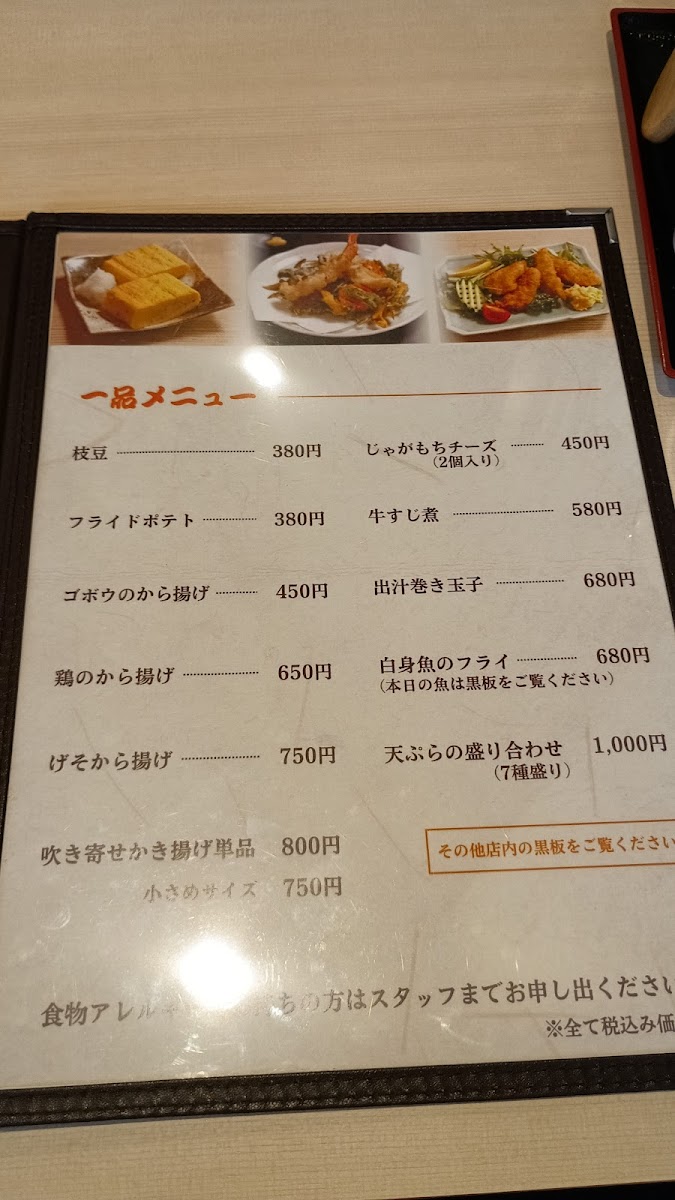 一品メニュー
枝豆 380円
フライドポテト 380円
ゴボウのから揚げ 450円
鶏のから揚げ 650円
げそから揚げ 750円
吹き寄せかき揚げ単品 800円
小さめサイズ 750円
じゃがもちチーズ 450円
(2個入り)
牛すじ煮 580円
出汁巻き玉子 680円
白身魚のフライ 680円
(本日の魚は黒板をご覧ください)
天ぷらの盛り合わせ 1,000円
(7種盛り)
その他店内の黒板をご覧ください
食物アレル ちの方はスタッフまでお申し出ください
※全て税込み価